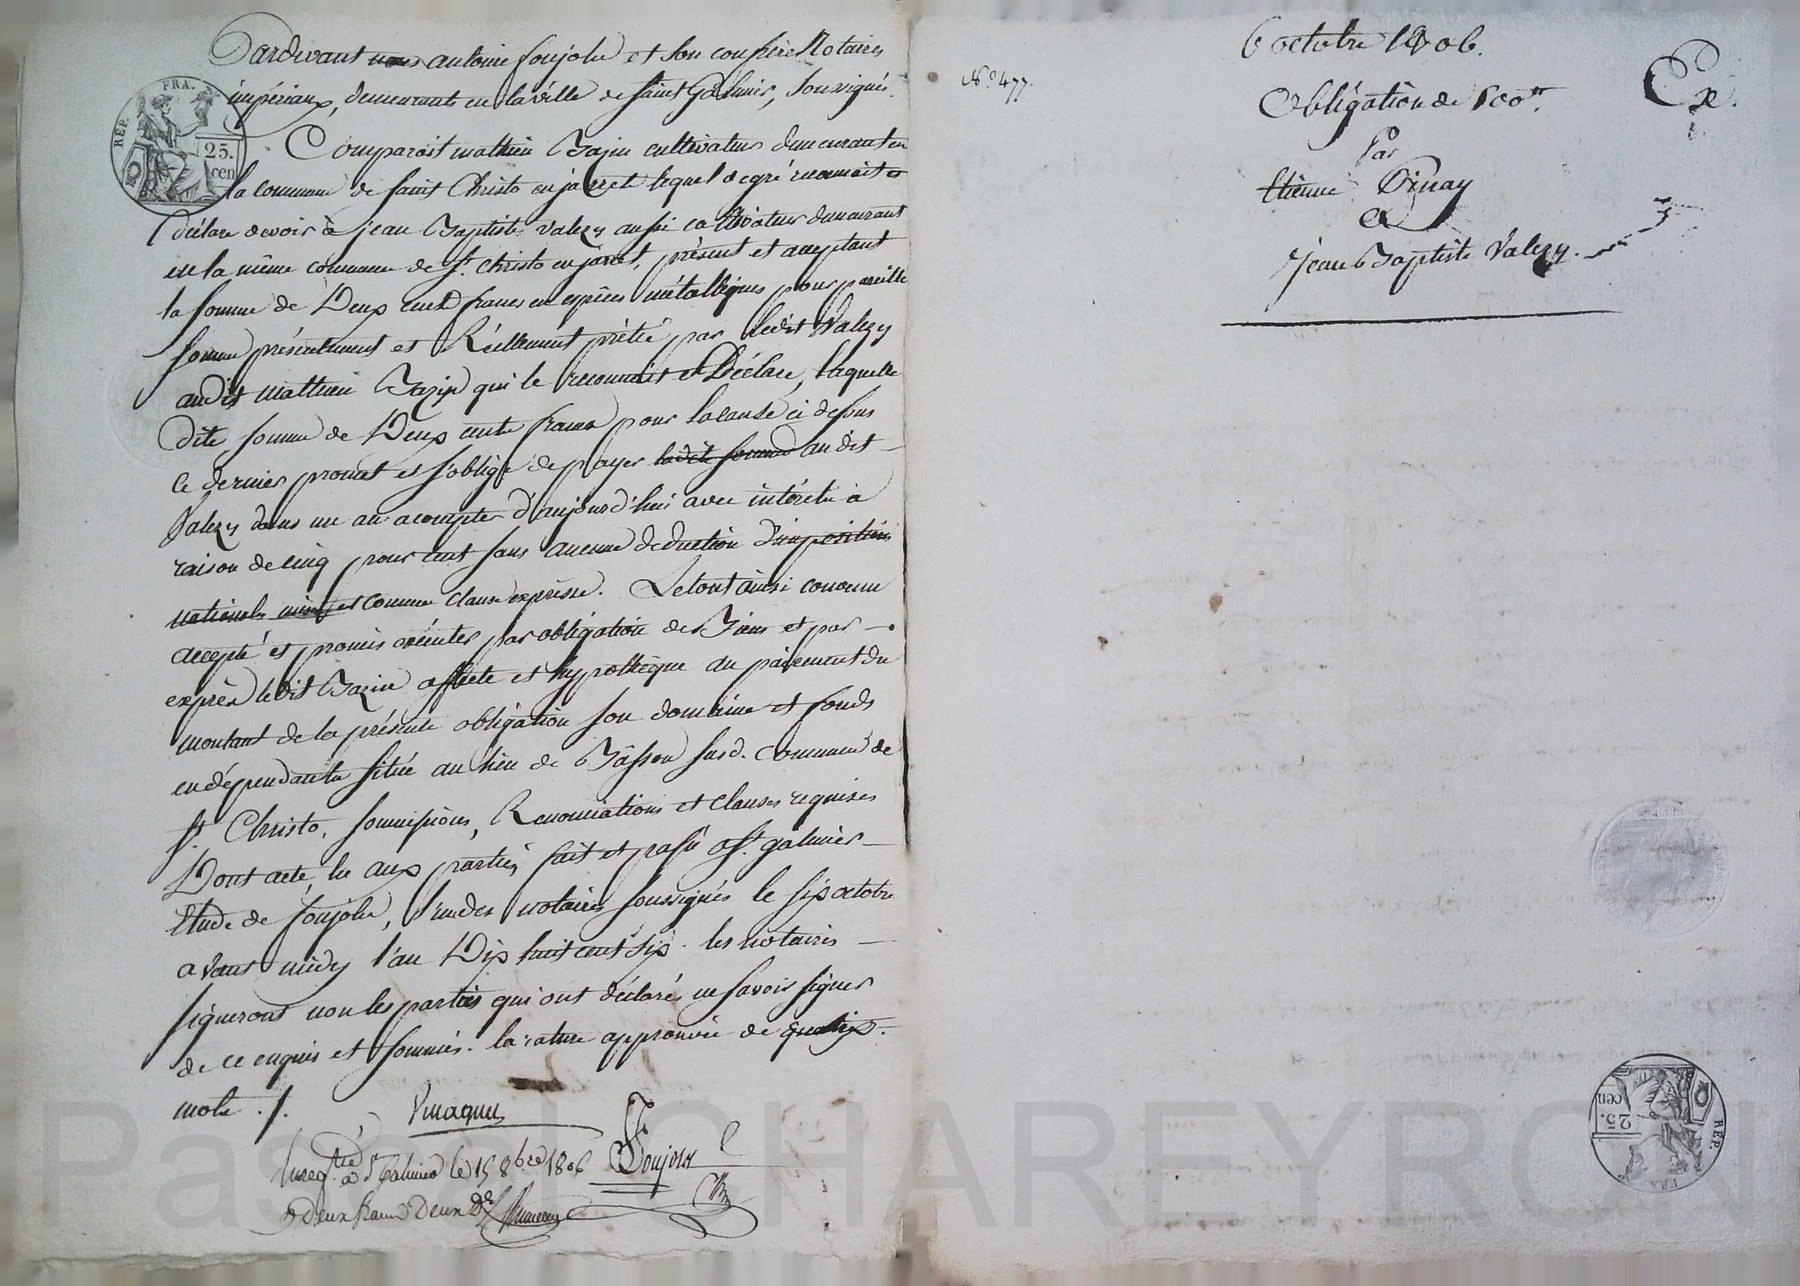 Pardevant nous antoine foujols et son confrère Notaires
impériaux, demeurants en la ville de saint Galmier, soussignés.
Comparait mathieu Bazin cultivateur demeurant en
la commune de saint Christo en jarret lequel de gré reconnait et
déclare devoir à jean Baptiste valezy aussi cultivateur demeurant
en la même commune de St. Christo en jarret, présent et acceptant
la somme de Deux cents francs en espèces métalliques pour pareille
somme présentement et Réellement prêtée par ledit Valezy
audit mathieu Bazin qui le reconnait et Déclare, laquelle
dite somme de Deux cents francs pour la cause ci dessus
ce dernier promet et s'oblige de payer ladite somme au dit
Valezy dans un an a compter d'aujourd'hui avec intérêts à
raison de cinq pour cent sans aucune deduction d'impositions
nationales et comme clause expresse. Le tout ainsi convenu
accepté et promis exécuter par obligation de Biens et par
exprès ledit Bazin affecte et hypothèque au paiement du
montant de la présente obligation son domaine et fonds
en dépendants situé au lieu de Bâsson susd. commune de
St. Christo, soumissions, Renonciations et clauses requises
Dont acte, lu aux parties, fait et passé à St. galmier
Etude de foujols, l'un des notaires soussignés le six octobre
avant midy l'an Dix huit cent six. les notaires
signeront non les parties qui ont déclarés ne savoir signer
de ce enquis et sommés. la rature approuvée de
mots ./.
Foujols
Enregtré à St Galmier le 15 8bre 1806
deux francs Deux
RÉP. FRA.
25.
cen
6 octobre 1806.
N.º 477.
Obligation de 500tt.
Ex.
Par
Etienne Pinay
à
Jean Baptiste Valezy.
RÉP. FRA.
25.
cen
Pascal CHAREYRON